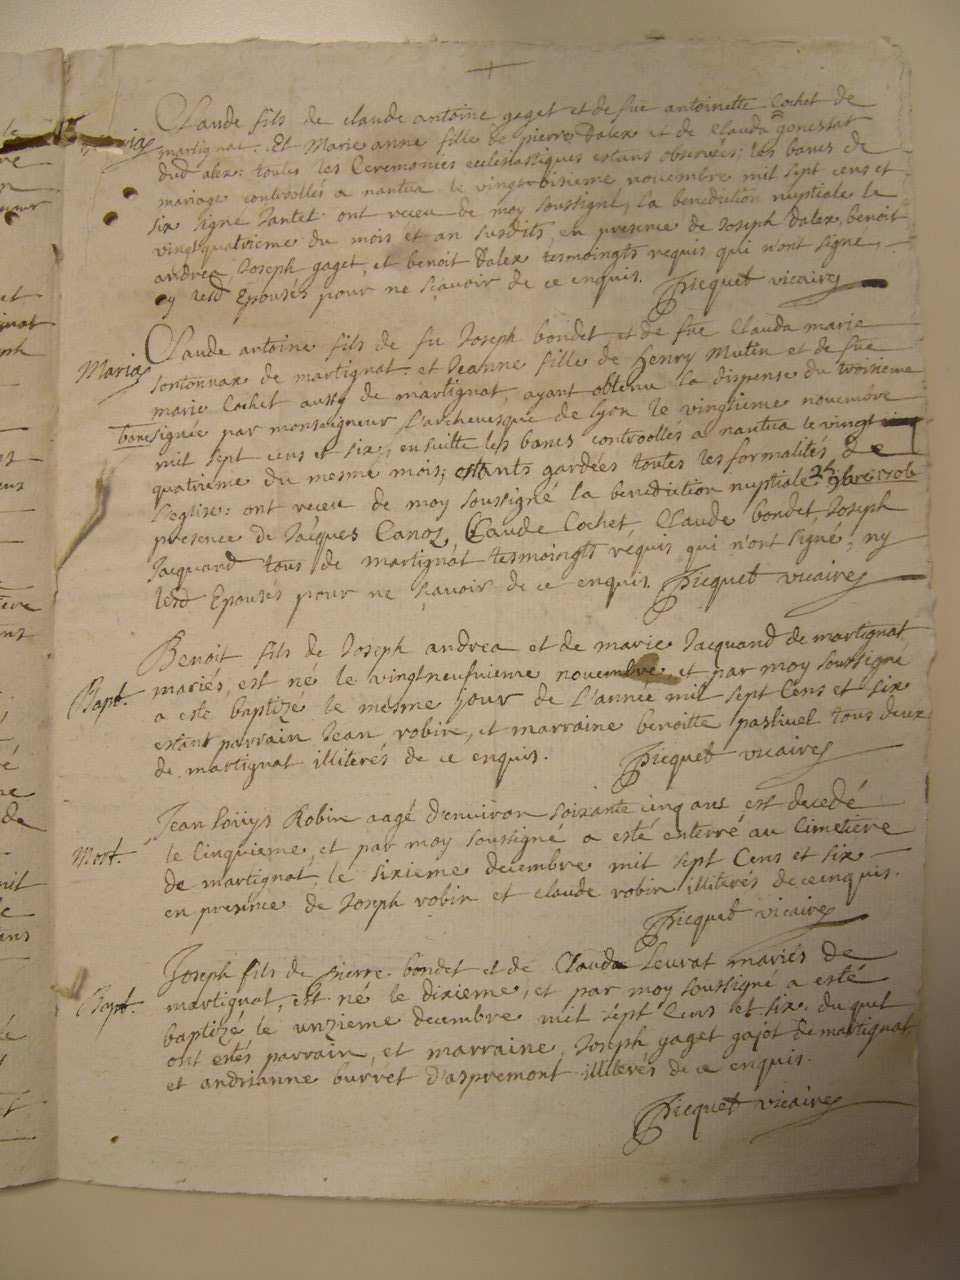 Claude fils de claude antoine gaget et de füe antoinette Cochet de
martignat. Et Marie anne fille de pierre Dalex et de Clauda gonessat
dud alex: toutes les Ceremonies ecclesiastiques estans observées; les bancs de
mariage controollés a nantua le vingtroisieme novembre mil sept cens et
six signé Jantet ont receu de moy soussigné, la benediction nuptiale le
vingtquatrieme du mois et an susdits, en presence de Joseph Dalex, benoit
andrea, Joseph gaget, et benoit Dalex tesmoingts requis qui n'ont signé,
ny lesd Epousés pour ne sçavoir de ce enquis. Picquet vicaire
Claude antoine fils de fu Joseph bondet et de füe Clauda marie
Mariag
sontonnax de martignat. et Jeanne fille de Henry Mutin et de füe
marie Cochet aussy de martignat, ayant obtenu la dispense du troisieme
banc signée par monseigneur L'archevesque de Lyon le vingtieme novembre
mil sept cens et six, ensuitte les bancs controollés a nantua le vingt
quatrieme du mesme mois; estants gardées toutes les formalités de
l'eglise: ont receu de moy soussigné la benediction nuptiale 24 9bre 1706
presence de Jacques Canoz Claude Cochet, Claude bondet, Joseph
Jacquand tous de martignat tesmoingts requis qui n'ont signé, ny
lesd Epousés pour ne sçavoir de ce enquis. Picquet vicaire
Benoit fils de Joseph andrea et de marie Jacquand de martignat
Bapt. mariés, est né le vingtneufvieme novembre et par moy soussigné
a esté baptizé le mesme jour de L'année mil sept Cens et six
estant parrain Jean robin, et marraine benoitte pasliuel tous deux
de martignat illiterés de ce enquis. Picquet vicaire
Jean Loüys Robin aagé d'environ soixante cinq ans est decedé
Mort. le Cinquieme, et par moy soussigné a esté enterré au Cimetiere
de martignat, le sixieme decembre mil sept Cens et six
en presence de Joseph robin et claude robin illiterés de ce enquis.
Picquet vicaire
Joseph fils de Pierre bondet et de Clauda Levrat mariés de
Bapt. martignat, est né le dixieme, et par moy soussigné a esté
baptizé le unzieme decembre mil sept Cens et six. duquel
ont estés parrain, et marraine, Joseph gaget gajot de martignat
et andrianne burret d'aspremont illiterés de ce enquis.
Picquet vicaire